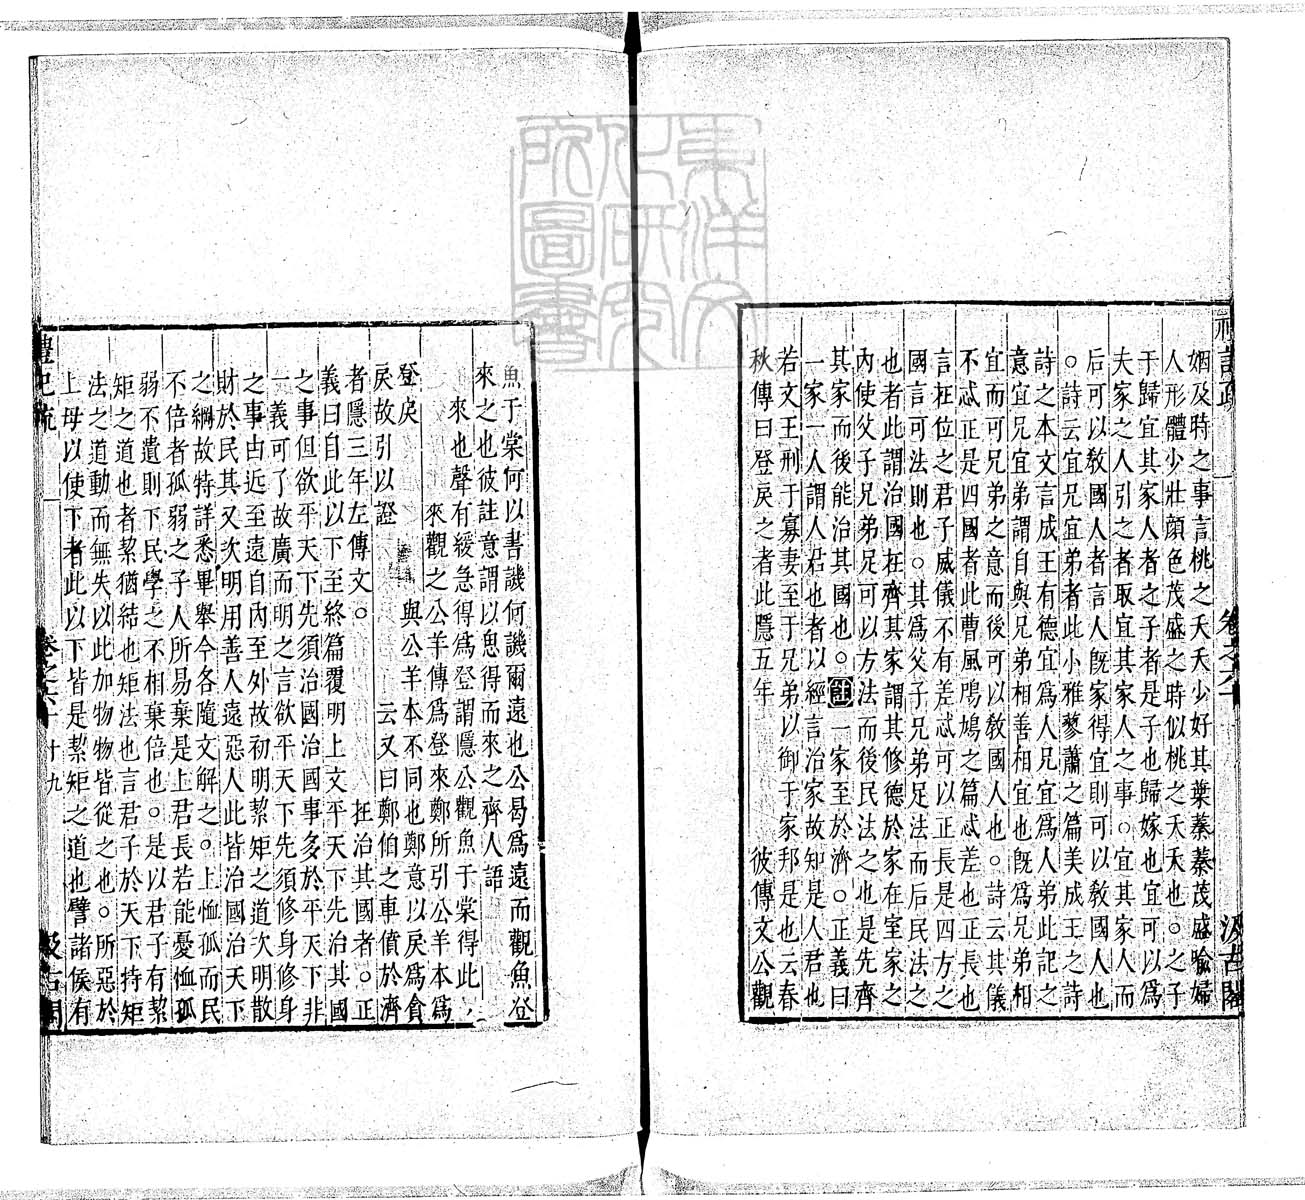 禮記疏
卷之六十
汲古閣
姻及時之事言桃之夭夭少好其葉蓁蓁茂盛喻婦
人形體少壯顔色茂盛之時似桃之夭夭也○之子
于歸宜其家人者之子者是子也歸嫁也宜可以爲
夫家之人引之者取宜其家人之事○宜其家人而
后可以敎國人者言人旣家得宜則可以敎國人也
○詩云宜兄宜弟者此小雅蓼蕭之篇美成王之詩
詩之本文言成王有德宜爲人兄宜爲人弟此記之
意宜兄宜弟謂自與兄弟相善相宜也旣爲兄弟相
宜而可兄弟之意而後可以敎國人也○詩云其儀
不忒正是四國者此曹風鳲鳩之篇忒差也正長也
言在位之君子威儀不有差忒可以正長是四方之
國言可法則也○其爲父子兄弟足法而后民法之
也者此謂治國在齊其家謂其修德於家在室家之
內使父子兄弟足可以方法而後民法之也是先齊
其家而後能治其國也○註一家至於濟○正義曰
一家一人謂人君也者以經言治家故知是人君也
若文王刑于寡妻至于兄弟以御于家邦是也云春
秋傳曰登戾之者此隱五年 彼傳文公觀
魚于棠何以書譏何譏爾遠也公曷爲遠而觀魚登
來之也彼註意謂以思得而來之齊人語
來也聲有緩急得爲登謂隱公觀魚于棠得此
來觀之公羊傳爲登來鄭所引公羊本爲
登戾 與公羊本不同也鄭意以戾爲貪
戾故引以證 云又曰鄭伯之車僨於濟
者隱三年左傳文○ 在治其國者○正
義曰自此以下至終篇覆明上文平天下先治其國
之事但欲平天下先須治國治國事多於平天下非
一義可了故廣而明之言欲平天下先須修身修身
之事由近至遠自內至外故初明絜矩之道次明散
財於民其又次明用善人遠惡人此皆治國治天下
之綱故特詳悉畢舉今各隨文解之○上恤孤而民
不倍者孤弱之子人所易棄是上君長若能憂恤孤
弱不遺則下民學之不相棄倍也○是以君子有絜
矩之道也者絜猶結也矩法也言君子於天下持矩
法之道動而無失以此加物物皆從之也○所惡於
上毋以使下者此以下皆是絜矩之道也譬諸侯有
禮記疏
卷之六十
十九
汲古閣